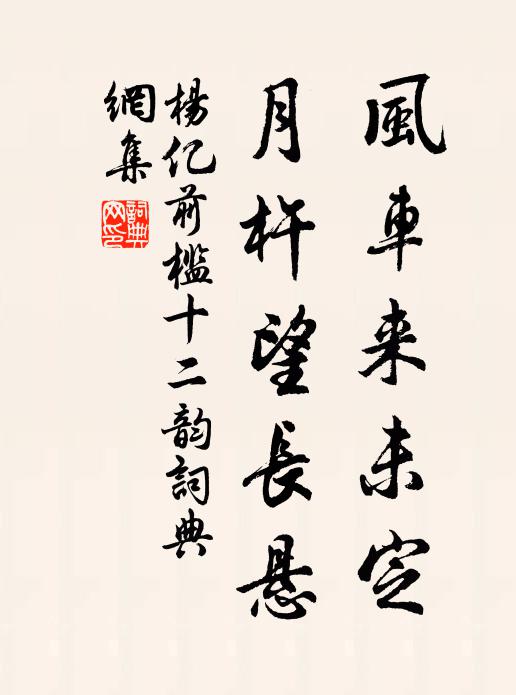 風車来未定
月杵望長悬
楊亿前槛十二韵詞典
網集
詞典
网印